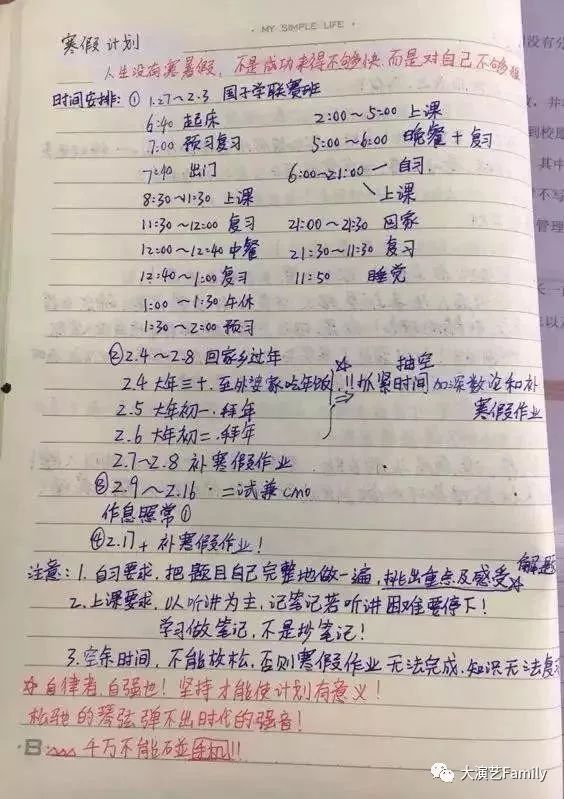 · MY SIMPLE LIFE ·
寒假计划
人生没有寒暑假，不是成功来得不够快 而是对自己不够狠
时间安排：① 1.27～2.3 国子学联赛班
6:40 起床 2:00～5:00 上课
7:00 预习复习 5:00～6:00 晚餐＋复习
7:40 出门 6:00～21:00 — 自习
上课
8:30～11:30 上课
11:30～12:00 复习 21:00～21:30 回家
12:00～12:40 中餐 21:30～11:30 复习
12:40～1:00 复习 11:50 睡觉
1:00～1:30 午休
1:30～2:00 预习
② 2.4～2.8 回家乡过年
2.4 大年三十．至外婆家吃年饭 ☆ 抽空
!! 抓紧时间 加深数论和补
2.5 大年初一．拜年 ⇒ 寒假作业
2.6 大年初二．拜年
2.7～2.8 补寒假作业
③ 2.9～2.16 · 二试兼cmo
作息照常①
④ 2.17＋ 补寒假作业！
注意：1. 自习要求．把题目自己完整地做一遍，挑出重点及感受 ☆ 解题
2. 上课要求．以听讲为主，记笔记若听讲困难要停下！
学习做笔记，不是抄笔记！
3. 空余时间，不能放松，否则寒假作业无法完成，知识无法复
☆ 自律者，自强也！坚持才能使计划有意义！
松驰的琴弦弹不出时代的强音！
千万不能碰手机!!!
没有分
，并
到校
其中
不写
管理
长一
来以
大演艺Family